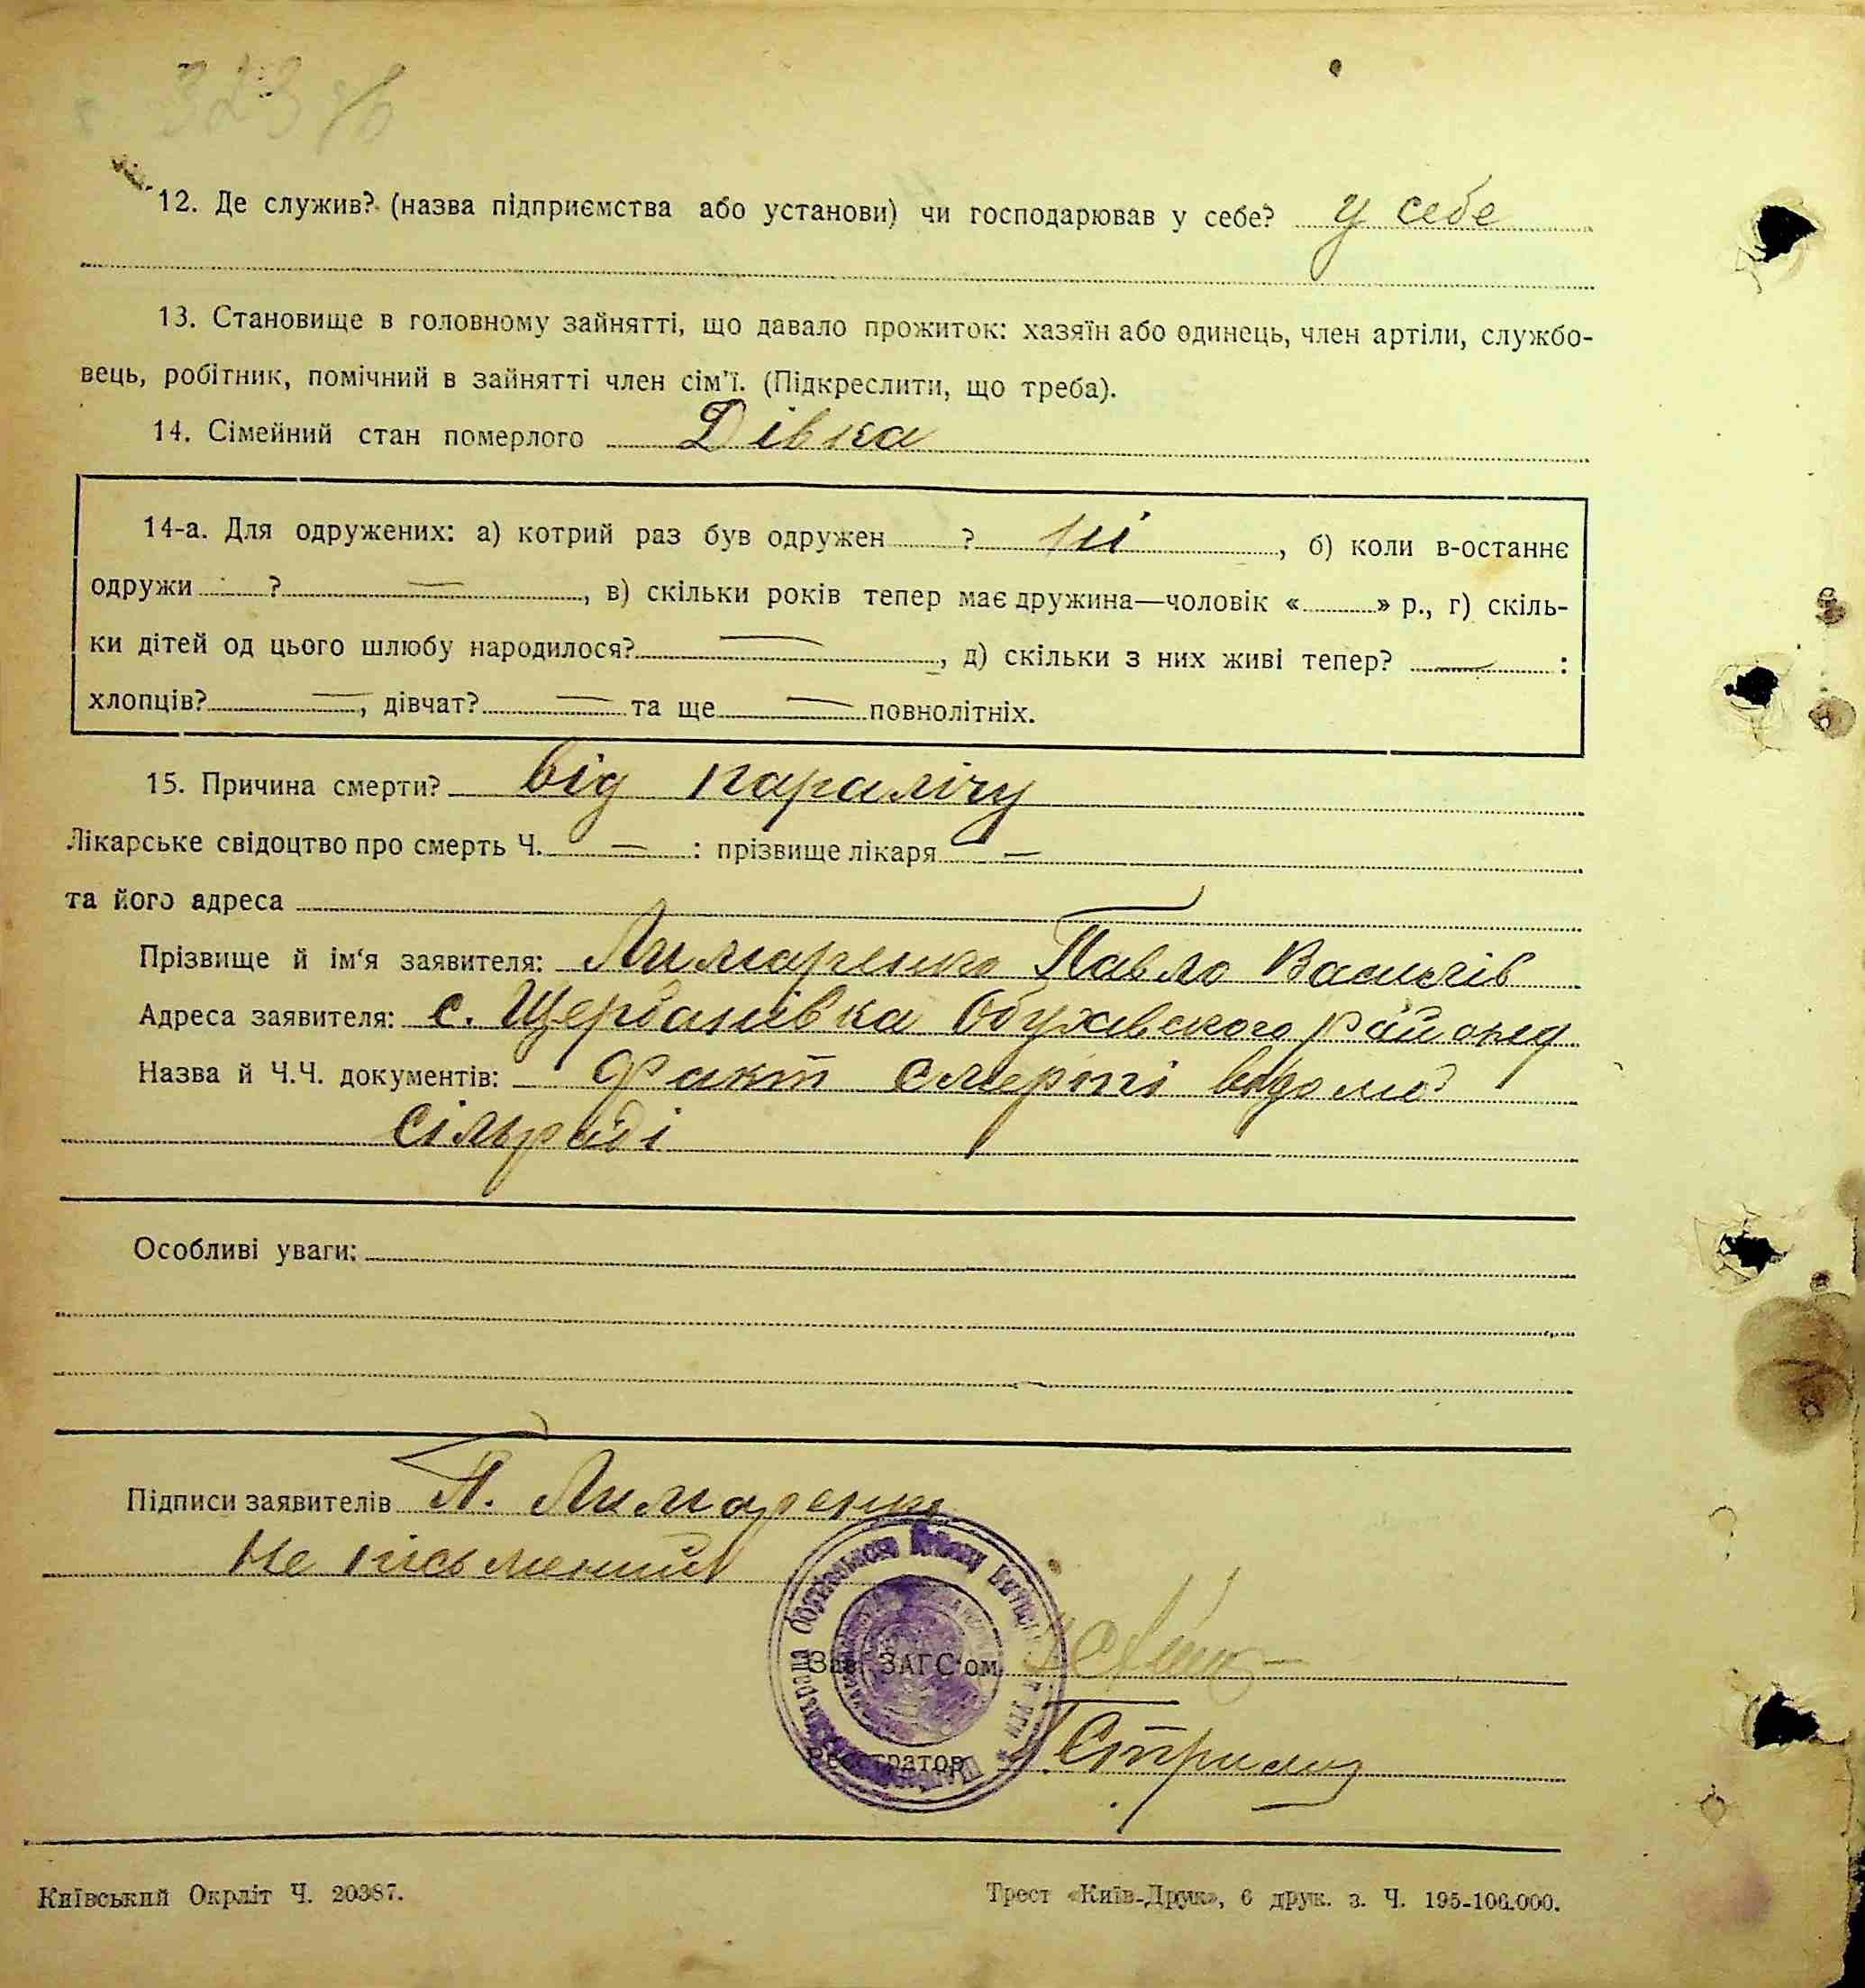 323
12. Де служив? (назва підприємства або установи) чи господарював у себе? у себе
13. Становище в головному зайнятті, що давало прожиток: хазяїн або одинець, член артіли, службо-
вець, робітник, помічний в зайнятті член сім'ї. (Підкреслити, що треба).
14. Сімейний стан померлого Дівка
14-а. Для одружених: а) котрий раз був одружен ? ні, б) коли в-останнє
одружи ? —, в) скільки років тепер має дружина—чоловік « » р., г) скіль-
ки дітей од цього шлюбу народилося? —, д) скільки з них живі тепер? — :
хлопців? —, дівчат? — та ще — повнолітніх.
15. Причина смерти? від паралічу
Лікарське свідоцтво про смерть Ч. — : прізвище лікаря —
та його адреса
Прізвище й ім'я заявителя: Лимаренко Павло Васильів
Адреса заявителя: с. Щербанівка Обухівського району
Назва й Ч.Ч. документів: Факт смерти відомо
сільраді
Особливі уваги:
Підписи заявителів П. Лимаренко
Не письменний
Зав. ЗАГС'ом
Реєстратор
Київський Окрліт Ч. 20387.
Трест «Київ-Друк», 6 друк. з. Ч. 195-106.000.